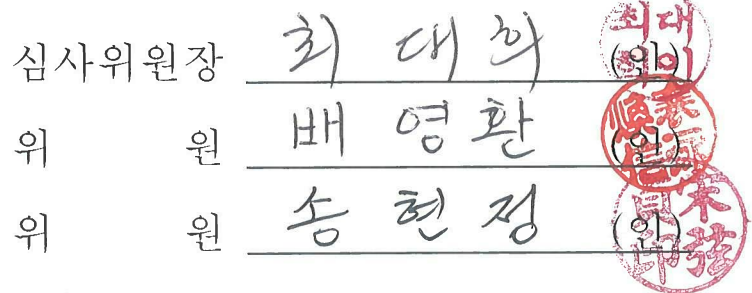 심사위원장 최 대 희 (인)
위 원 배 영 환 (인)
위 원 송 현 정 (인)